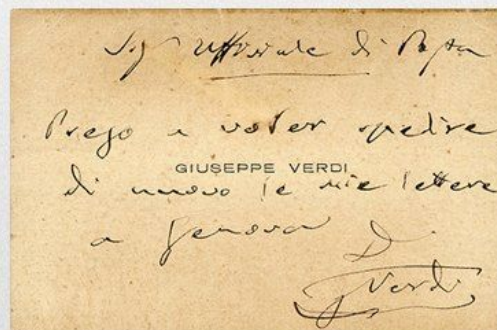 Sig Uffiziale di Posta
Prego a voler spedire
GIUSEPPE VERDI
di nuovo le mie lettere
a Genova
G Verdi